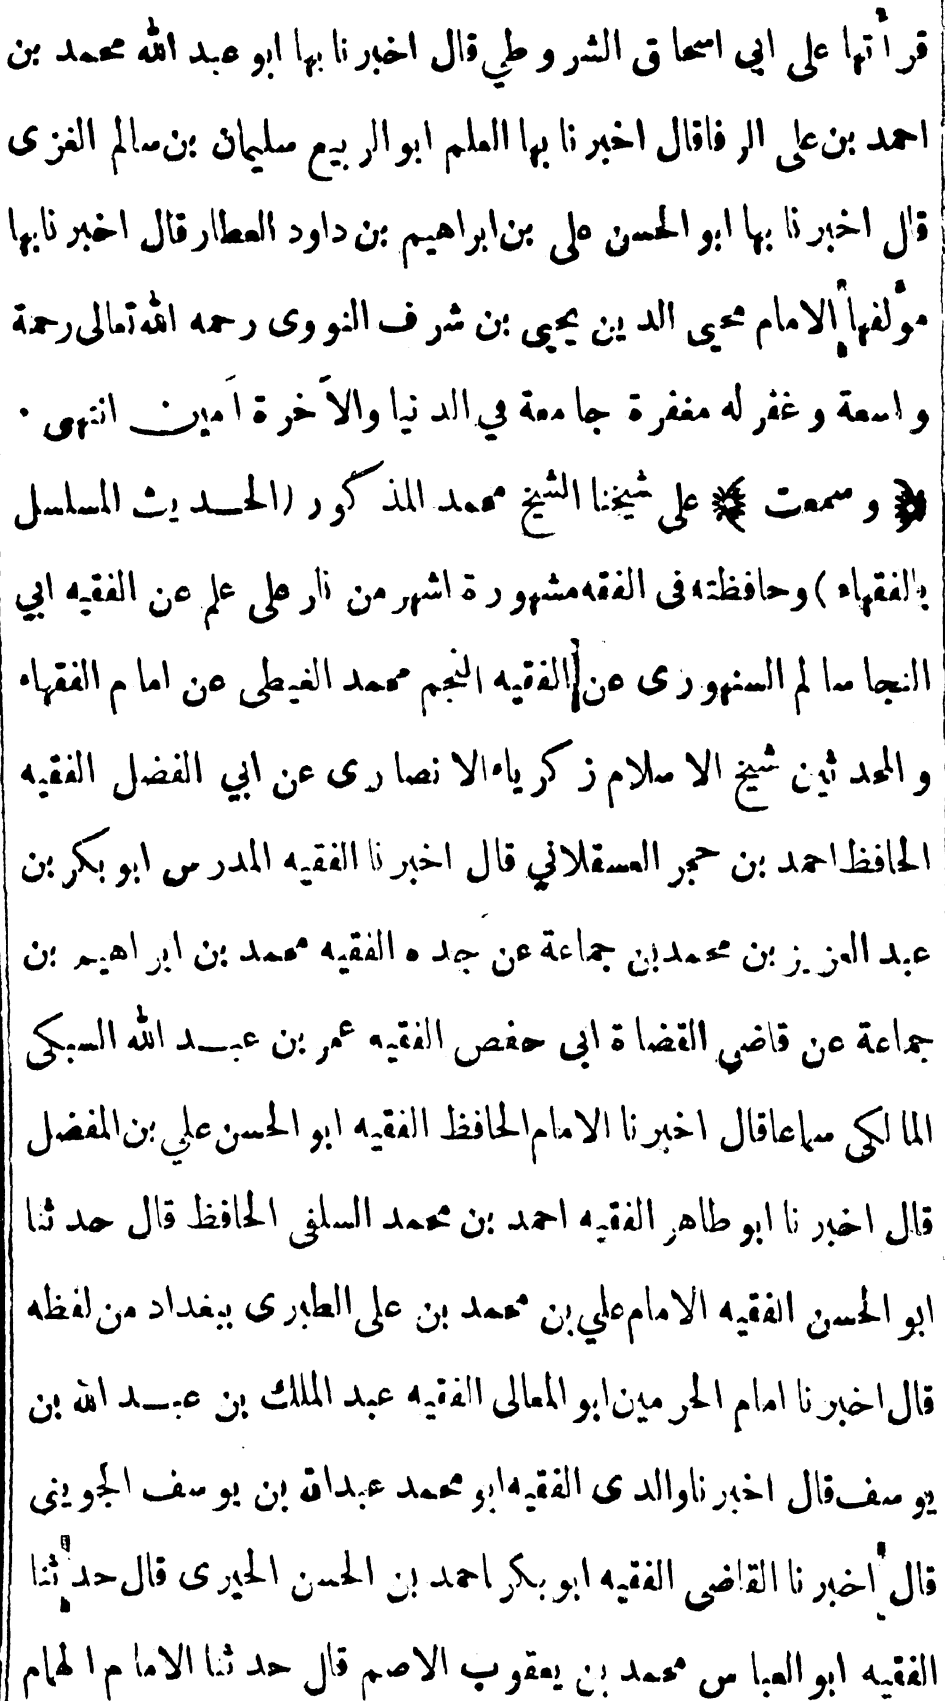 قرأتها على ابى اسحاق الشروطي قال اخبرنا بها ابو عبد الله محمد بن
احمد بن على الرفا قال اخبرنا بها العلم ابو الربيع سليمان بن سالم الغزى
قال اخبرنا بها ابو الحسن على بن ابراهيم بن داود العطار قال اخبرنا بها
مؤلفها الامام محيى الدين يحيى بن شرف النووى رحمه الله تعالى رحمة
واسعة وغفر له مغفرة جامعة في الدنيا والآخرة آمين انتهى .
﴿ وسمعت ﴾ على شيخنا الشيخ محمد المذكور (الحديث المسلسل
بالفقهاء) وحافظته فى الفقه مشهورة اشهر من نار على علم عن الفقيه ابي
النجا سالم السنهورى عن الفقيه النجم محمد الغيطى عن امام الفقهاء
والمحدثين شيخ الاسلام زكرياء الانصارى عن ابي الفضل الفقيه
الحافظ احمد بن حجر العسقلاني قال اخبرنا الفقيه المدرس ابو بكر بن
عبد العزيز بن محمد بن جماعة عن جده الفقيه محمد بن ابراهيم بن
جماعة عن قاضي القضاة ابى حفص الفقيه عمر بن عبد الله السبكى
المالكى سماعا قال اخبرنا الامام الحافظ الفقيه ابو الحسن علي بن المفضل
قال اخبرنا ابو طاهر الفقيه احمد بن محمد السلفى الحافظ قال حدثنا
ابو الحسن الفقيه الامام علي بن محمد بن على الطبرى ببغداد من لفظه
قال اخبرنا امام الحرمين ابو المعالى الفقيه عبد الملك بن عبد الله بن
يوسف قال اخبرنا والدى الفقيه ابو محمد عبدالله بن يوسف الجوينى
قال أخبرنا القاضى الفقيه ابو بكر احمد بن الحسن الحيرى قال حدثنا
الفقيه ابو العباس محمد بن يعقوب الاصم قال حدثنا الامام الهمام